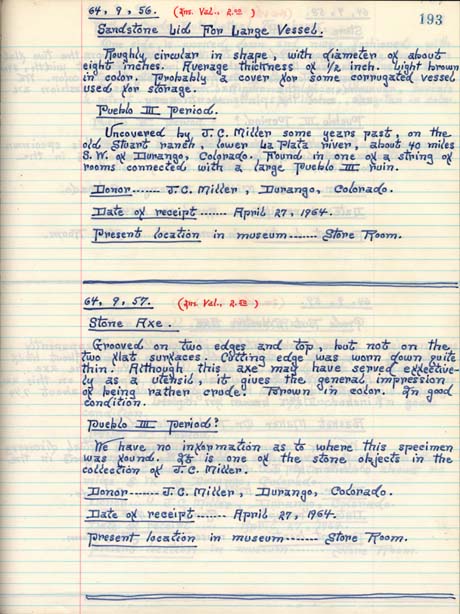 193
64, 9, 56. (Ins. Val., 2.00)
Sandstone Lid For Large Vessel.
Roughly circular in shape, with diameter of about
eight inches. Average thickness of 1/2 inch. Light brown
in color. Probably a cover for some corrugated vessel
used for storage.
Pueblo III Period.
Uncovered by J.C. Miller some years past, on the
old Stuart ranch, lower La Plata river, about 40 miles
S.W. of Durango, Colorado. Found in one of a string of
rooms connected with a large Pueblo III ruin.
Donor----- J.C. Miller, Durango, Colorado.
Date of receipt------ April 27, 1964.
Present location in museum------ Store Room.
64, 9, 57. (Ins. Val., 2.50)
Stone Axe.
Grooved on two edges and top, but not on the
two flat surfaces. Cutting edge was worn down quite
thin. Although this axe may have served effective-
ly as a utensil, it gives the general impression
of being rather crude. Brown in color. In good
condition.
Pueblo III Period?
We have no information as to where this specimen
was found. It is one of the stone objects in the
collection of J.C. Miller.
Donor------ J.C. Miller, Durango, Colorado.
Date of receipt------ April 27, 1964.
Present location in museum------- Store Room.